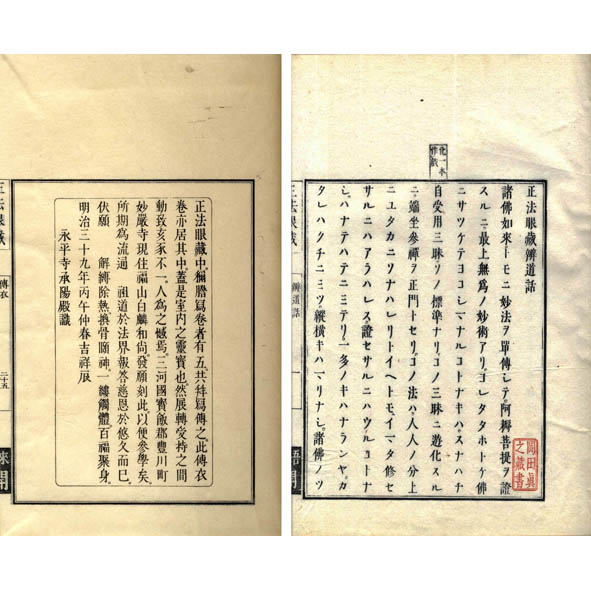 化一本
作戯
正法眼藏辨道話
諸佛如來トモニ妙法ヲ單傳シテ阿耨菩提ヲ證
スルニ最上無爲ノ妙術アリコレタタホトケ佛
ニサツケテヨコシマナルコトナキハスナハチ
自受用三昧ソノ標準ナリコノ三昧ニ遊化スル
ニ端坐參禪ヲ正門トセリコノ法ハ人人ノ分上
ニユタカニソナハレリトイヘトモイマタ修セ
サルニハアラハレス證セサルニハウルコトナ
シハナテハテニミテリ一多ノキハナランヤカ
タレハクチニミツ縱橫キハマリナシ諸佛ノツ
岡田眞
之藏書
正法眼藏
辨道話
一
正法眼藏中稱謄寫卷者有五共特寫傳之此傳衣
卷亦居其中蓋是室內之靈寶也然展轉受持之間
動致亥豕不一人爲之憾焉三河國寶飯郡豐川町
妙嚴寺現住福山白麟和尙發願刻此以便參學矣
所期爲流通 祖道於法界報答慈恩於悠久而巳
伏願 解縛除熱換骨頤神一縷觸體百福聚身
明治三十九年丙午仲春吉祥辰
永平寺承陽殿識
正法眼藏
傳衣
二十五